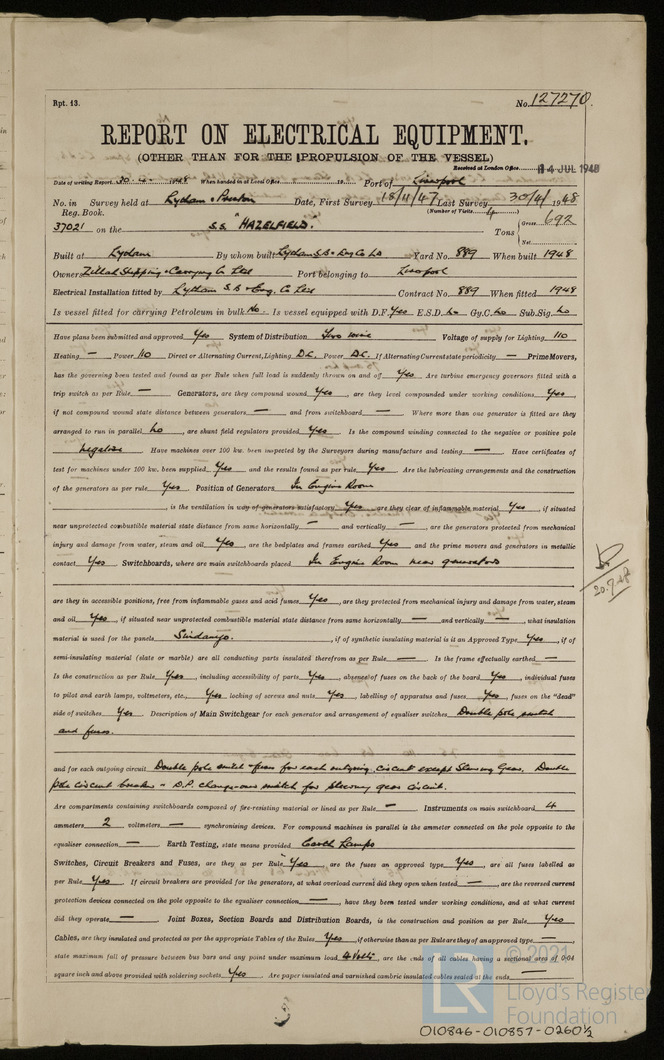 Rpt. 13.
No. 127270.
REPORT ON ELECTRICAL EQUIPMENT.
(OTHER THAN FOR THE PROPULSION OF THE VESSEL)
Received at London Office 14 JUL 1948
Date of writing Report 30.4.1948 When handed in at Local Office 19 Port of Liverpool
No. in Survey held at Lytham & Preston Date, First Survey 18/11/47 Last Survey 30/4/1948
Reg. Book. (Number of Visits 4)
37021 on the S.S. "HAZELFIELD." Tons { Gross 692
Net
Built at Lytham By whom built Lytham S.B. & Eng Co Ld Yard No. 889 When built 1948
Owners Zillah Shipping & Carrying Co Ltd Port belonging to Liverpool
Electrical Installation fitted by Lytham S.B. & Eng. Co Ltd Contract No. 889 When fitted 1948
Is vessel fitted for carrying Petroleum in bulk No. Is vessel equipped with D.F. Yes E.S.D. No Gy.C. No Sub.Sig. No
Have plans been submitted and approved Yes System of Distribution Two wire Voltage of supply for Lighting 110
Heating — Power 110 Direct or Alternating Current, Lighting D.C. Power D.C. If Alternating Current state periodicity — Prime Movers,
has the governing been tested and found as per Rule when full load is suddenly thrown on and off Yes. Are turbine emergency governors fitted with a
trip switch as per Rule — Generators, are they compound wound Yes, are they level compounded under working conditions Yes,
if not compound wound state distance between generators — and from switchboard — Where more than one generator is fitted are they
arranged to run in parallel No, are shunt field regulators provided Yes Is the compound winding connected to the negative or positive pole
Negative Have machines over 100 kw. been inspected by the Surveyors during manufacture and testing — Have certificates of
test for machines under 100 kw. been supplied Yes and the results found as per rule Yes Are the lubricating arrangements and the construction
of the generators as per rule Yes. Position of Generators In Engine Room
, is the ventilation in way of generators satisfactory Yes are they clear of inflammable material Yes, if situated
near unprotected combustible material state distance from same horizontally — and vertically —, are the generators protected from mechanical
injury and damage from water, steam and oil Yes, are the bedplates and frames earthed Yes and the prime movers and generators in metallic
contact Yes Switchboards, where are main switchboards placed In Engine Room near generators
20.7.48
are they in accessible positions, free from inflammable gases and acid fumes Yes, are they protected from mechanical injury and damage from water, steam
and oil Yes, if situated near unprotected combustible material state distance from same horizontally — and vertically —, what insulation
material is used for the panels Sindanyo., if of synthetic insulating material is it an Approved Type Yes, if of
semi-insulating material (slate or marble) are all conducting parts insulated therefrom as per Rule — Is the frame effectually earthed —
Is the construction as per Rule Yes, including accessibility of parts Yes, absence of fuses on the back of the board Yes, individual fuses
to pilot and earth lamps, voltmeters, etc., Yes locking of screws and nuts Yes, labelling of apparatus and fuses Yes, fuses on the "dead"
side of switches Yes Description of Main Switchgear for each generator and arrangement of equaliser switches Double pole switch
and fuses.
and for each outgoing circuit Double pole switch & fuses for each outgoing circuit except Steering Gear. Double
pole circuit breaker & D.P. changeover switch for steering gear circuit.
Are compartments containing switchboards composed of fire-resisting material or lined as per Rule — Instruments on main switchboard 4
ammeters 2 voltmeters — synchronising devices. For compound machines in parallel is the ammeter connected on the pole opposite to the
equaliser connection — Earth Testing, state means provided Earth Lamps
Switches, Circuit Breakers and Fuses, are they as per Rule Yes, are the fuses an approved type Yes, are all fuses labelled as
per Rule Yes If circuit breakers are provided for the generators, at what overload current did they open when tested —, are the reversed current
protection devices connected on the pole opposite to the equaliser connection —, have they been tested under working conditions, and at what current
did they operate — Joint Boxes, Section Boards and Distribution Boards, is the construction and position as per Rule Yes
Cables, are they insulated and protected as per the appropriate Tables of the Rules Yes, if otherwise than as per Rule are they of an approved type —,
state maximum fall of pressure between bus bars and any point under maximum load 4 Volts, are the ends of all cables having a sectional area of 0.04
square inch and above provided with soldering sockets Yes. Are paper insulated and varnished cambric insulated cables sealed at the ends —
© 2021
Lloyd's Register
Foundation
010846-010857-0260½